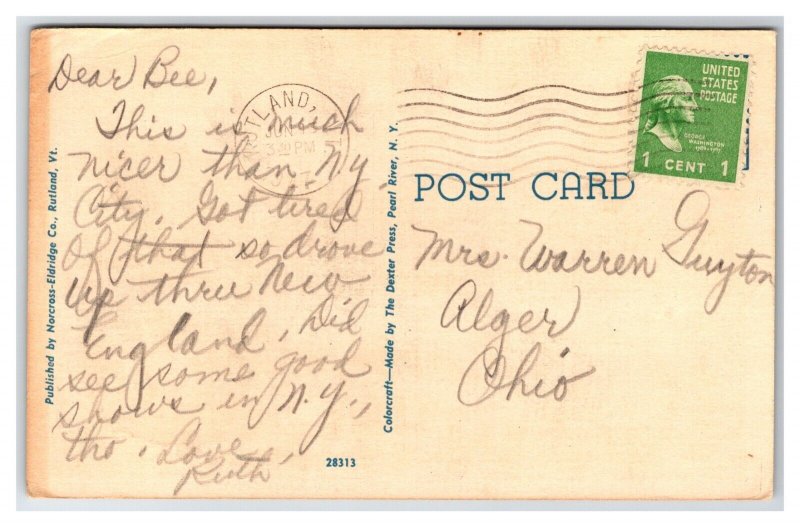 Dear Bee,
This is much
nicer than N.Y.
City. Got tired
of that so drove
up thru New
England. Did
see some good
shows in N.Y.,
tho. Love,
Ruth
Published by Norcross-Eldridge Co., Rutland, Vt.
Colorcraft—Made by The Dexter Press, Pearl River, N. Y.
28313
RUTLAND,
JUN
3 30 PM
UNITED
STATES
POSTAGE
GEORGE
WASHINGTON
1 CENT 1
POST CARD
Mrs. Warren Guyton
Alger
Ohio